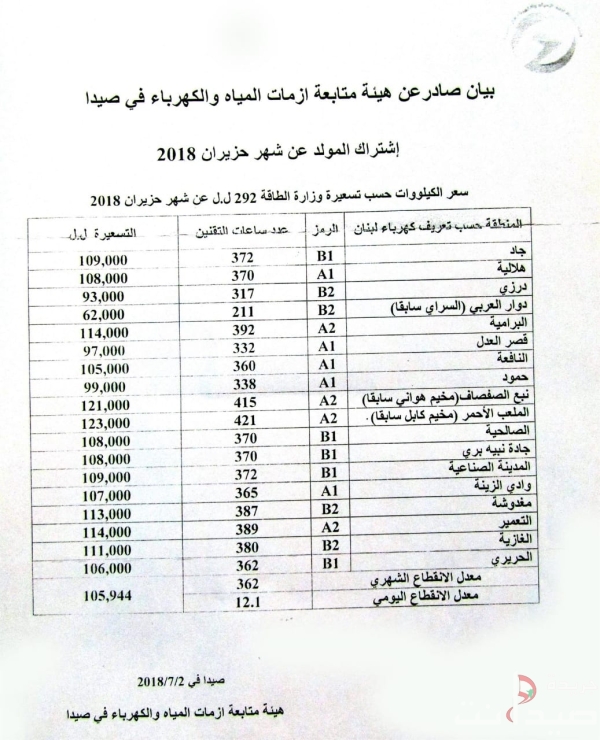 بيان صادر عن هيئة متابعة ازمات المياه والكهرباء في صيدا
إشتراك المولد عن شهر حزيران 2018
سعر الكيلووات حسب تسعيرة وزارة الطاقة 292 ل.ل عن شهر حزيران 2018
المنطقة حسب تعريف كهرباء لبنان الرمز عدد ساعات التقنين التسعيرة ل.ل
جاد B1 372 109,000
هلالية A1 370 108,000
درزي B2 317 93,000
دوار العربي (السراي سابقا) B2 211 62,000
البرامية A2 392 114,000
قصر العدل A1 332 97,000
النافعة A1 360 105,000
حمود A1 338 99,000
نبع الصفصاف(مخيم هواني سابقا) A2 415 121,000
الملعب الأحمر (مخيم كابل سابقا). A2 421 123,000
الصالحية B1 370 108,000
جادة نبيه بري B1 370 108,000
المدينة الصناعية B1 372 109,000
وادي الزينة A1 365 107,000
مغدوشة B2 387 113,000
التعمير A2 389 114,000
الغازية B2 380 111,000
الحريري B1 362 106,000
معدل الانقطاع الشهري 362 105,944
معدل الانقطاع اليومي 12.1
صيدا في 2018/7/2
هيئة متابعة ازمات المياه والكهرباء في صيدا